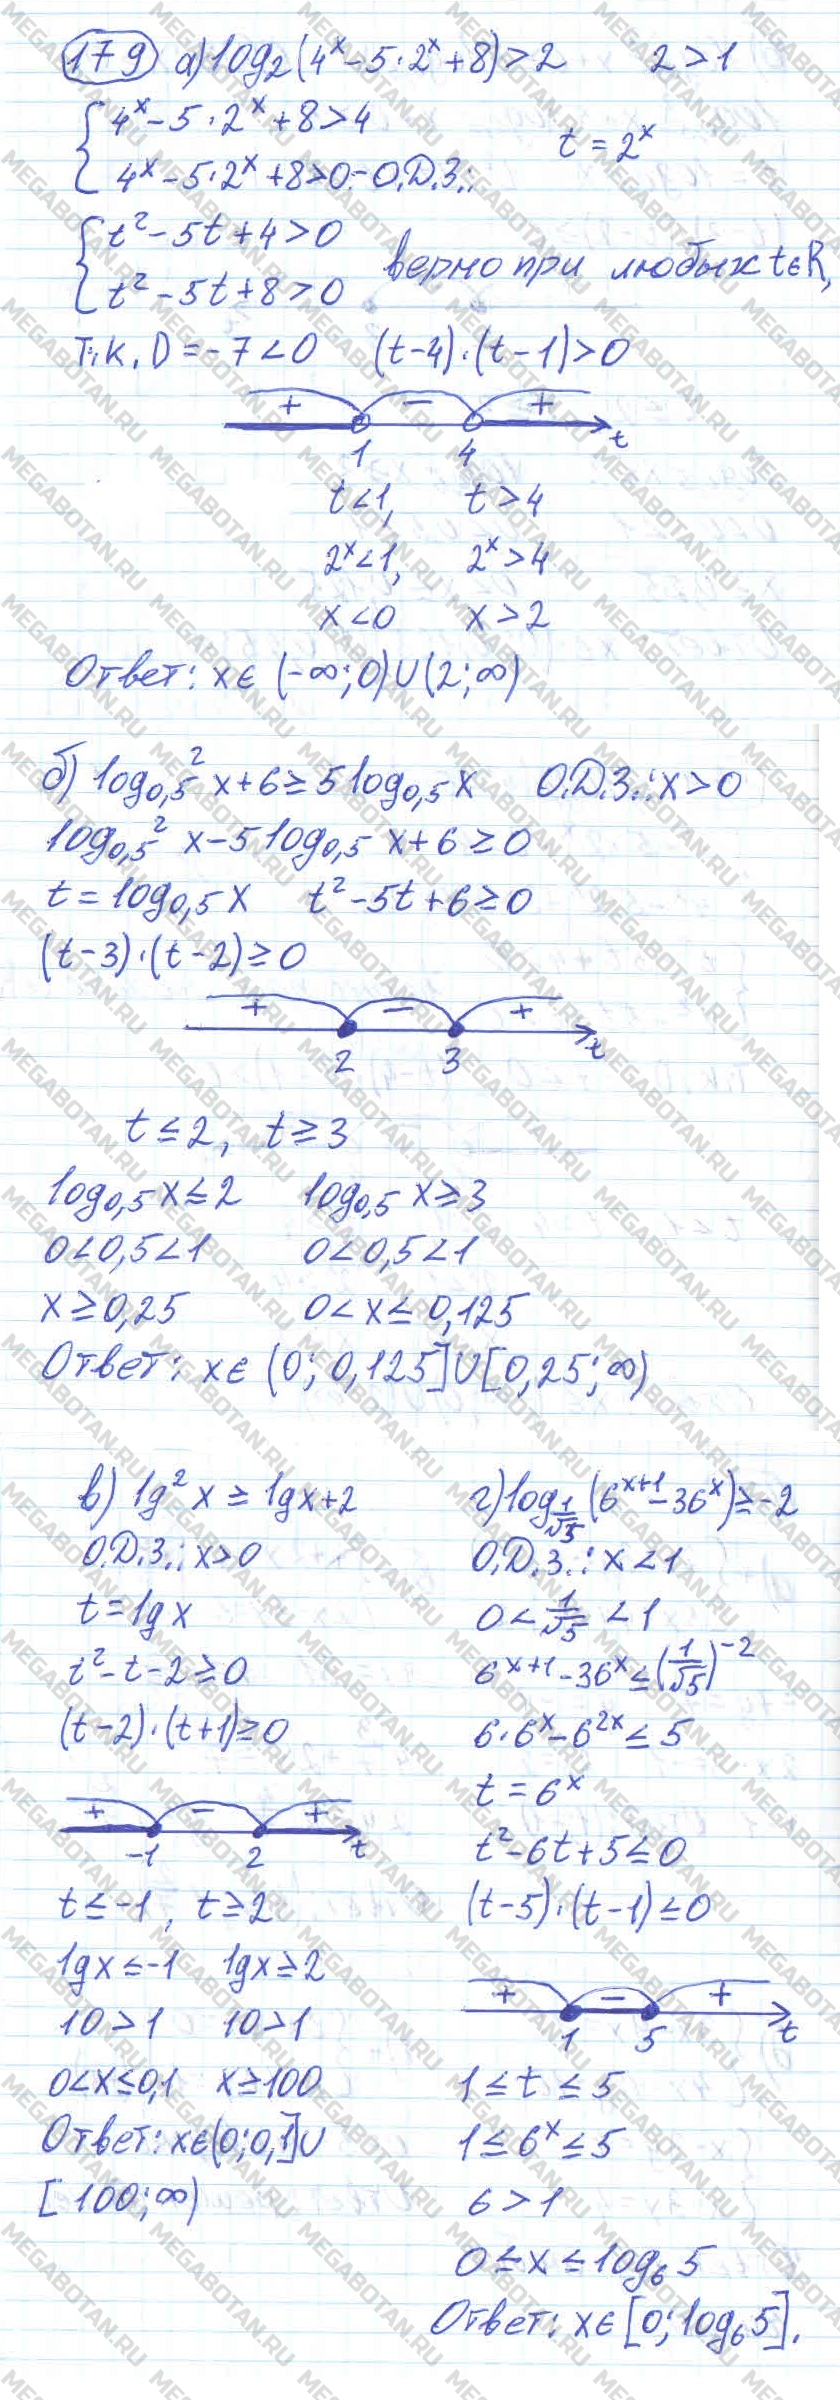 179 а) log₂(4ˣ-5·2ˣ+8)>2 2>1
4ˣ-5·2ˣ+8>4
t=2ˣ
4ˣ-5·2ˣ+8>0-О.Д.З.:
t²-5t+4>0
верно при любых t∈R,
t²-5t+8>0
т.к. D=-7<0 (t-4)·(t-1)>0
+ - +
1 4 t
t<1, t>4
2ˣ<1, 2ˣ>4
x<0 x>2
Ответ: x∈(-∞;0)∪(2;∞)
б) log₀,₅² x+6≥5log₀,₅x О.Д.З.: x>0
log₀,₅² x-5log₀,₅ x+6≥0
t=log₀,₅x t²-5t+6≥0
(t-3)·(t-2)≥0
+ - +
2 3 t
t≤2, t≥3
log₀,₅x≤2 log₀,₅x≥3
0<0,5<1 0<0,5<1
x≥0,25 0<x≤0,125
Ответ: x∈(0;0,125]∪[0,25;∞)
в) lg²x≥lgx+2
О.Д.З.: x>0
t=lgx
t²-t-2≥0
(t-2)·(t+1)≥0
+ - +
-1 2 t
t≤-1, t≥2
lgx≤-1 lgx≥2
10>1 10>1
0<x≤0,1 x≥100
Ответ: x∈(0;0,1]∪
[100;∞)
г) log_(1/√5)(6ˣ⁺¹-36ˣ)≥-2
О.Д.З.: x<1
0<1/√5<1
6ˣ⁺¹-36ˣ≤(1/√5)⁻²
6·6ˣ-6²ˣ≤5
t=6ˣ
t²-6t+5≤0
(t-5)·(t-1)≤0
+ - +
1 5 t
1≤t≤5
1≤6ˣ≤5
6>1
0≤x≤log₆5
Ответ: x∈[0;log₆5].
MEGABOTAN.RU